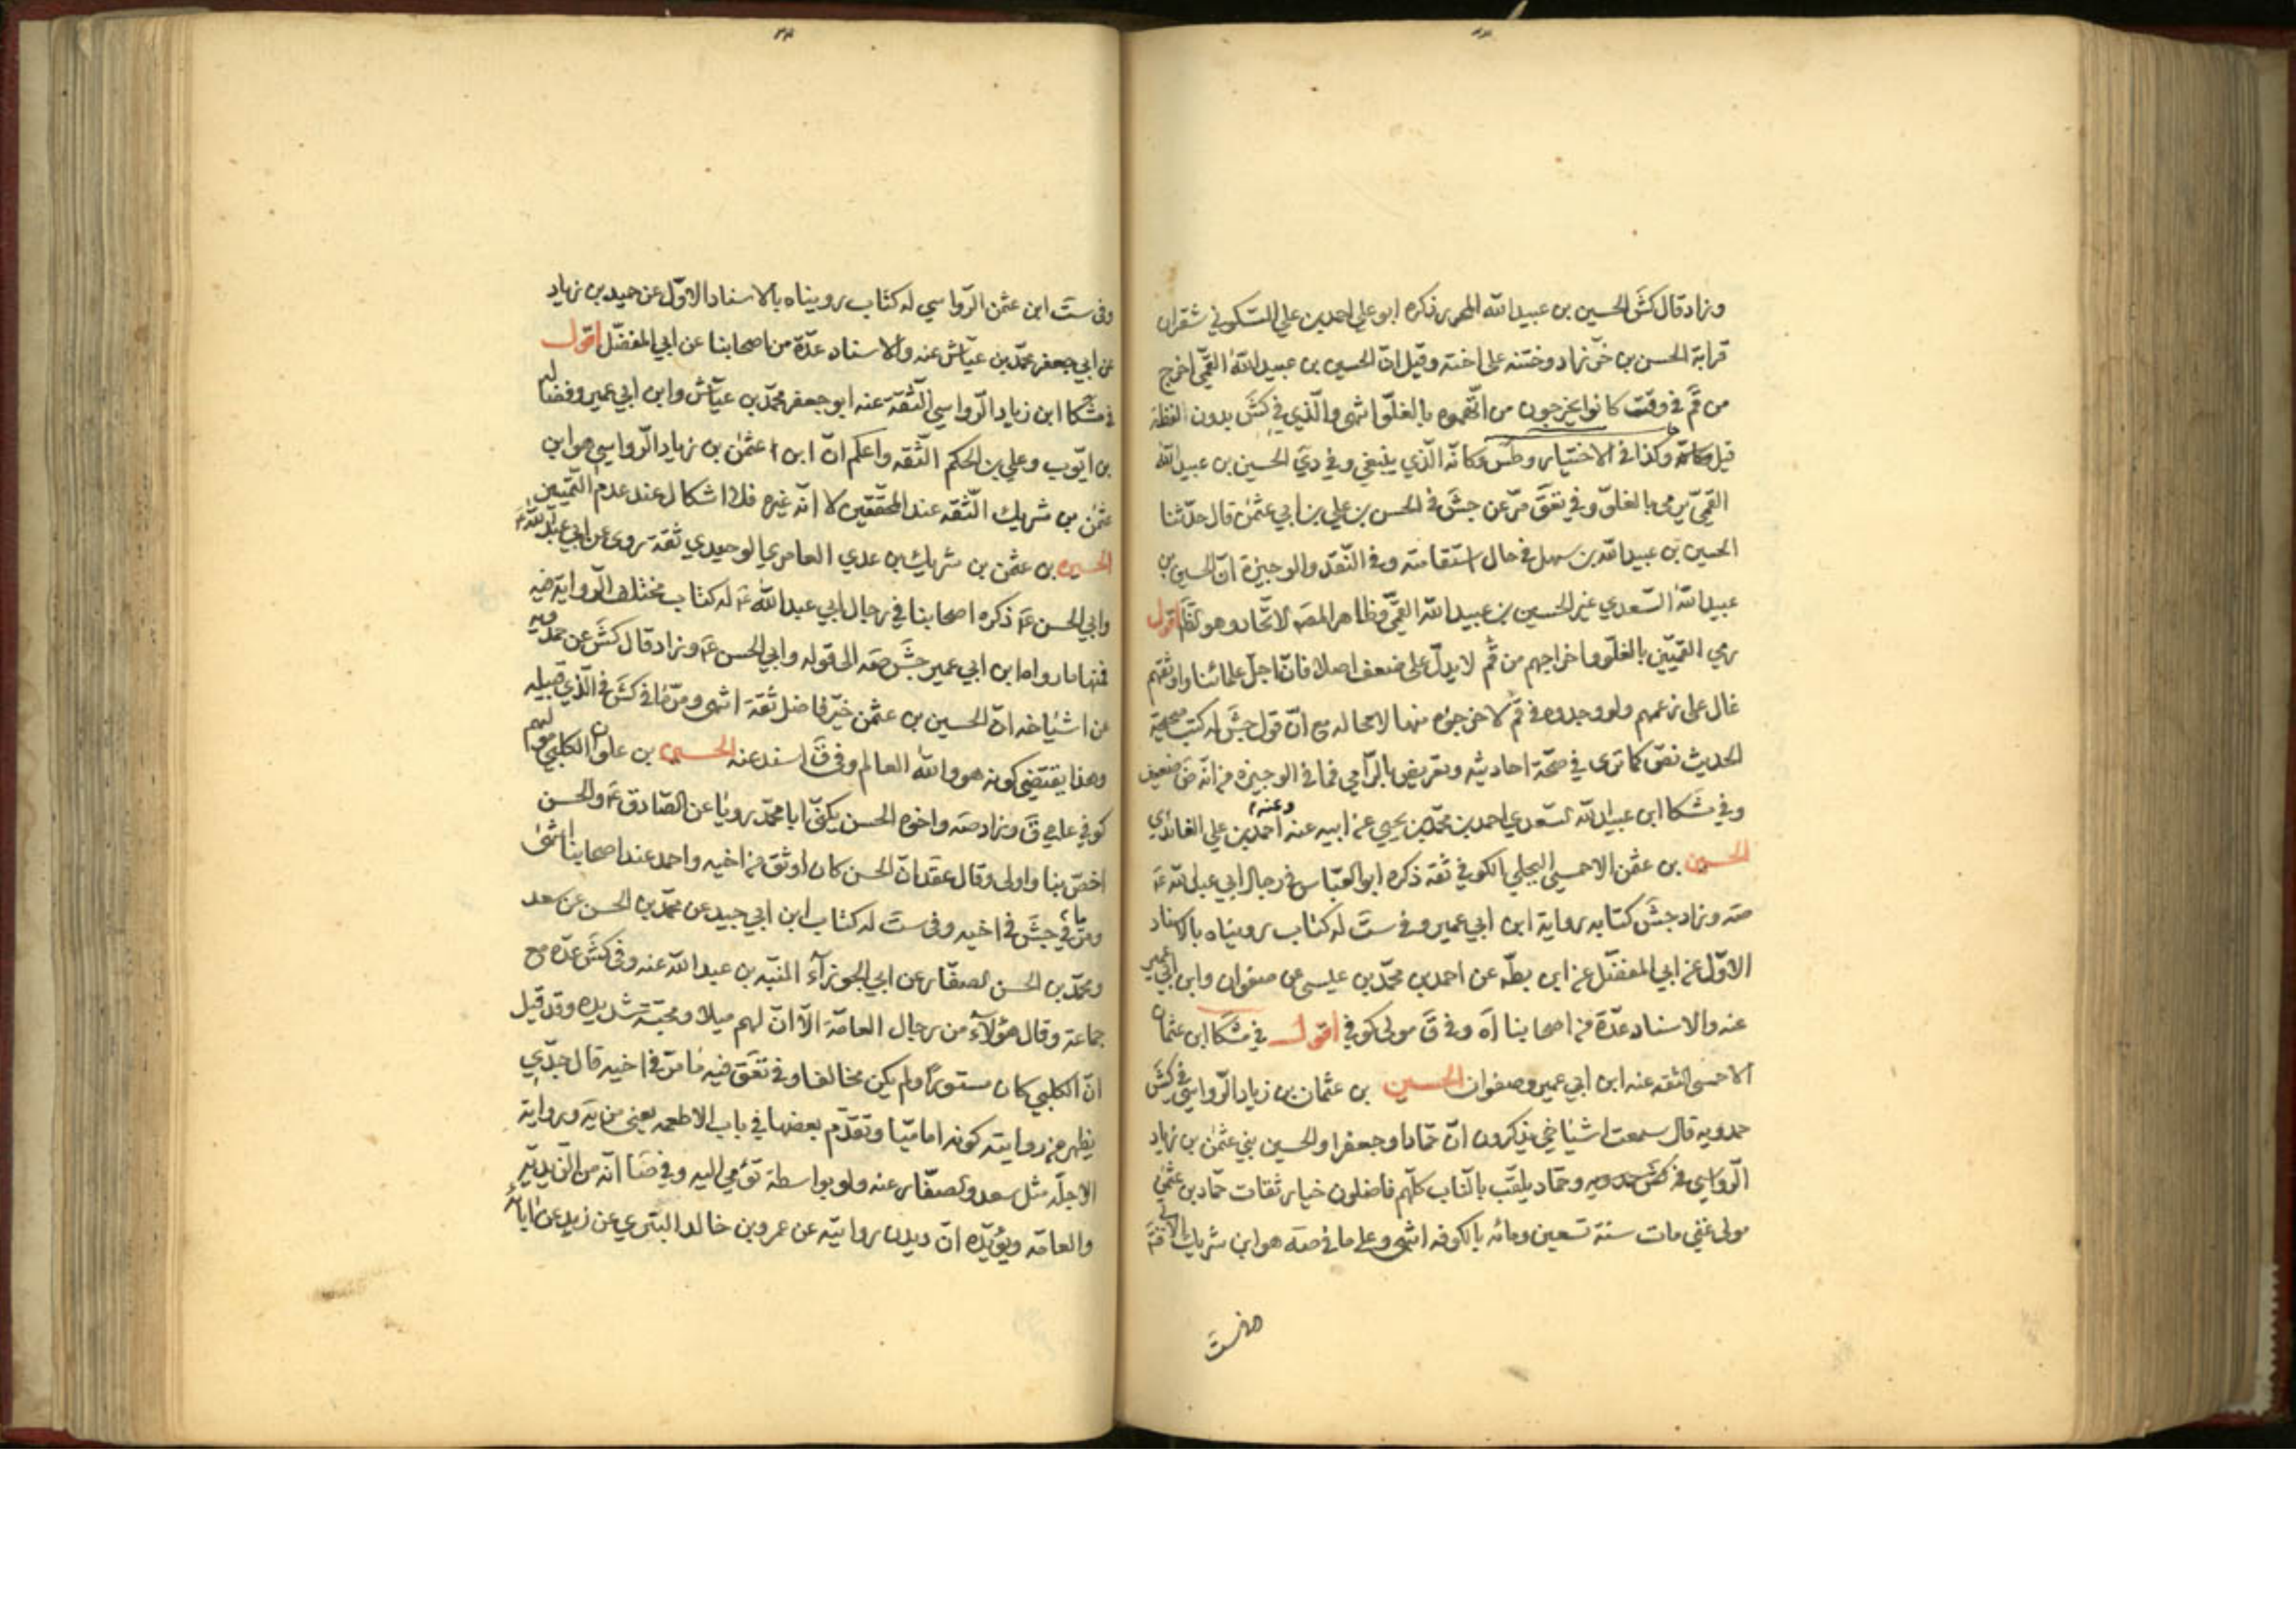 وزاد قال كش الحسين بن عبيد الله المحرر ذكره ابو علي احمد بن علي السكوني شقران
قرابة الحسن بن خرزاد وختنه على اخته وقيل ان الحسين بن عبيد الله القمي اخرج
من قم في وقت كانوا يخرجون من اتهموه بالغلو انتهى والذي في كش بدون لفظة
قيل وكذا في الاختيار وطس وكانه الذي ينبغي وفي دي الحسين بن عبيد الله
القمي يرمى بالغلو وفي تعق مر عن جش في الحسن بن علي بن ابي عثمن قال حدثنا
الحسين بن عبيد الله بن سهل في حال استقامته وفي النقد والوجيزة ان الحسين بن
عبيد الله السعدي غير الحسين بن عبيد الله القمي وظاهر المصـ الاتحاد وهو اقول
رمي القميين بالغلو واخراجهم من قم لا يدل على ضعف اصلا فان اجل علمائنا واوثقهم
غال على زعمهم ولو وجدوه في قم لاخرجوه منها لا محالة مع ان قول جش له كتب صحيحة
الحديث نص كما ترى في صحة احاديثه وتعريض بالرامي فما في الوجيزة من انه ض ضعيف
وفي مشكا ابن عبيد الله السعدي احمد بن محمد بن يحيى عن ابيه عنه وعنه احمد بن علي الفائدي
الحسين بن عثمن الاحمسي البجلي الكوفي ثقة ذكره ابو العباس في رجال ابي عبد الله ع
صه وزاد جش كتابه رواية ابن ابي عمير وفي ست له كتاب رويناه بالاسناد
الاول عن ابي المفضل عن ابن بطه عن احمد بن محمد بن عيسى عن صفوان وابن ابي عمير
عنه والاسناد عدة من اصحابنا اه وفي ق مولى كوفي اقول في مشكا ابن عثمان
الاحمسي الثقه عنه ابن ابي عمير وصفوان الحسين بن عثمان بن زياد الرواسي في كش
حمدويه قال سمعت اشياخي يذكرون ان حمادا وجعفرا والحسين بني عثمن بن زياد
الرواسي وحماد يلقب بالناب كلهم فاضلون خيار ثقات حماد بن عثمن
مولى غني مات سنة تسعين ومائه بالكوفه انتهى وعلى ما في صه هو ابن شريك
وفي ست
وفي ست ابن عثمن الرواسي له كتاب رويناه بالاسناد الاول عن حميد بن زياد
عن ابي جعفر محمد بن عياش عنه والاسناد عدة من اصحابنا عن ابي المفضل اقول
في مشكا ابن زياد الرواسي الثقة عنه ابو جعفر محمد بن عياش وابن ابي عمير وفضاله
بن ايوب وعلي بن الحكم الثقه واعلم ان ابن عثمن بن زياد الرواسي هو ابن
عثمن بن شريك الثقه عند المحققين لا انه غيره فلا اشكال عند عدم التمييز
الحسين بن عثمن بن شريك بن عدي العامري الوحيدي ثقة روى عن ابي عبد الله ع
وابي الحسن ع ذكره اصحابنا في رجال ابي عبد الله ع له كتاب مختلف الرواية فيه
فمنها ما رواه ابن ابي عمير جش صه الى قوله وابي الحسن ع وزاد قال كش عن حمدويه
عن اشياخه ان الحسين بن عثمن خير فاضل ثقة انتهى ومر ما في كش في الذي قبيله
وهذا يقتضي كونه هو والله العالم وفي ق اسند عنه الحسين بن علوان الكلبي مولاهم
كوفي عامي ق وزاد صه واخوه الحسن يكنى ابا محمد رويا عن الصادق ع والحسن
اخص بنا واولى وقال عقد ان الحسن كان اوثق من اخيه واحمد عند اصحابنا انتهى
ومر ما في جش في اخيه وفي ست له كتاب ابن ابي جيد عن محمد بن الحسن عن سعد
ومحمد بن الحسن الصفار عن ابي الجوزاء المنبه بن عبد الله عنه وفي كش عده مع
جماعة وقال هؤلاء من رجال العامة الا ان لهم ميلا ومحبة شديده وقد قيل
ان الكلبي كان مستورا ولم يكن مخالفا وفي تعق فيه ما مر في اخيه قال جدي
يظهر من روايته كونه اماميا وتقدم بعضها في باب الاطعمه يعني من يه ورواية
الاجله مثل سعد والصفار عنه ولو بواسطة تؤمي اليه وفي ضا انه من الزيدية
والعامه ويؤيده ان ديدن روايته عن عمرو بن خالد البتري عن زيد عن ابائه